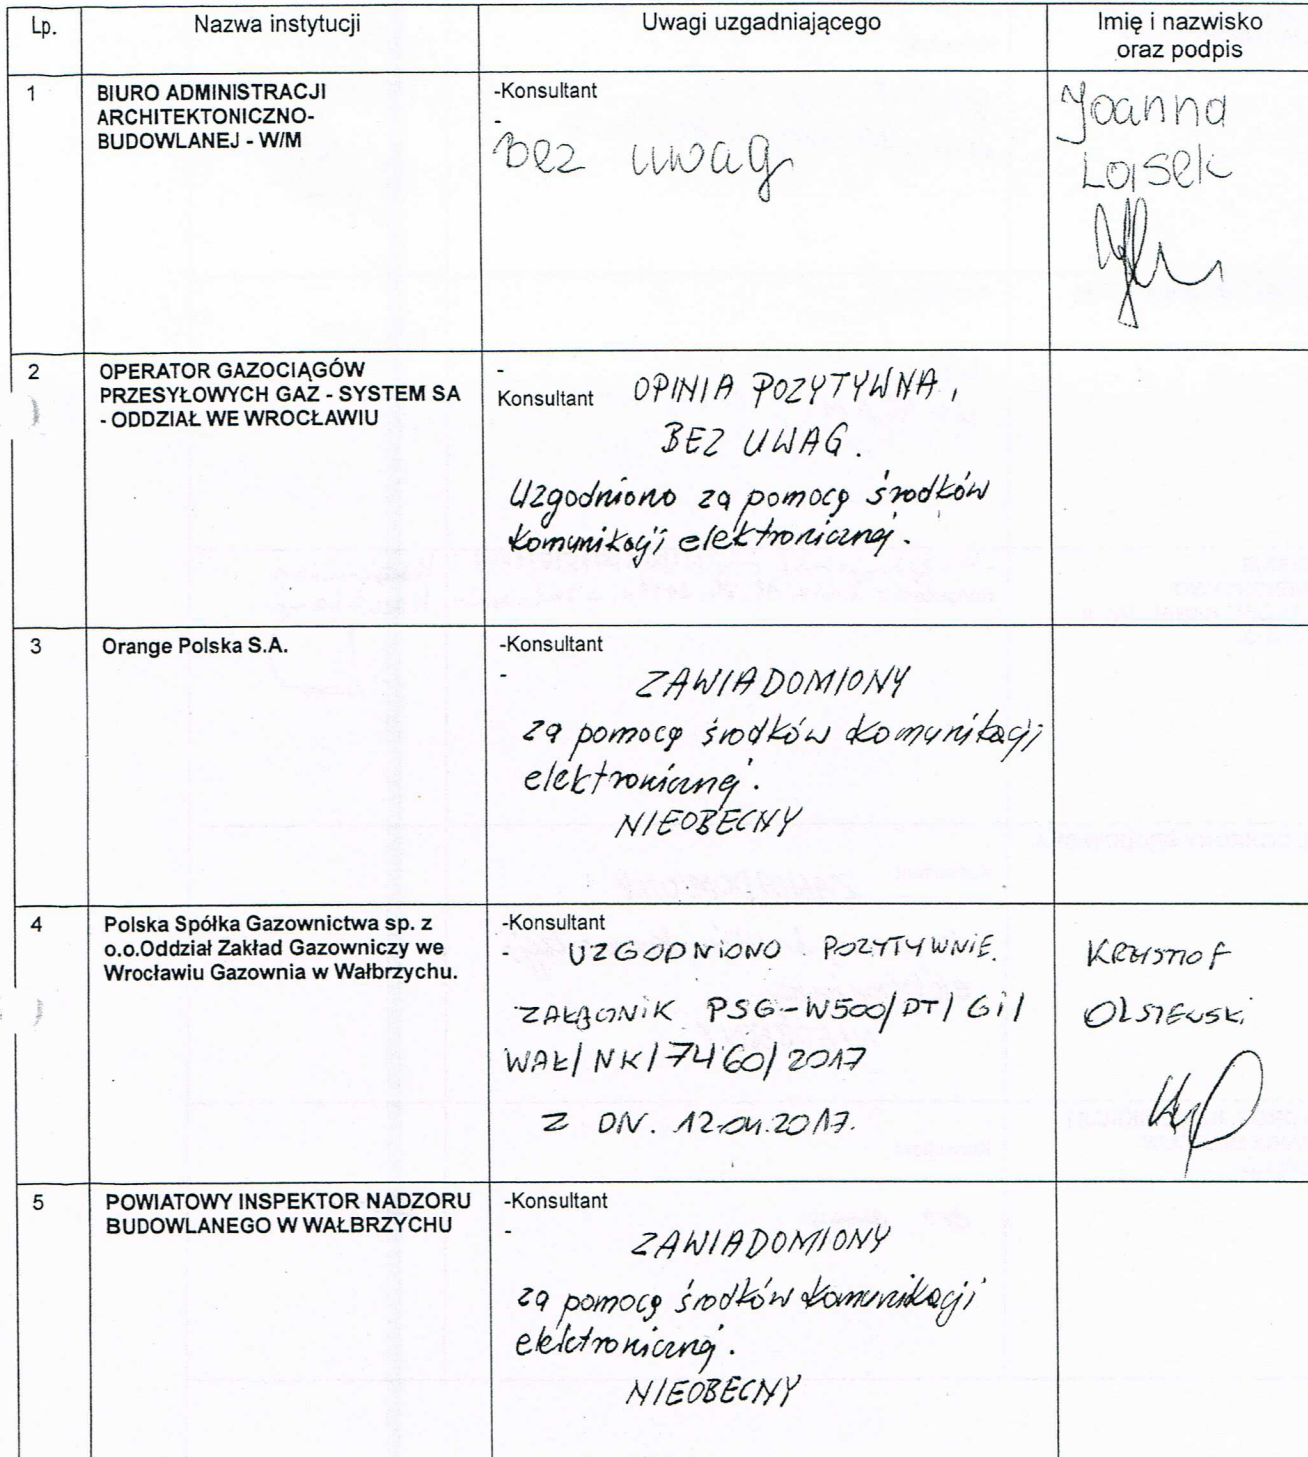 Lp.
Nazwa instytucji
Uwagi uzgadniającego
Imię i nazwisko
oraz podpis
1
BIURO ADMINISTRACJI
ARCHITEKTONICZNO-
BUDOWLANEJ - W/M
-Konsultant
-
bez uwag
Joanna
2
OPERATOR GAZOCIĄGÓW
PRZESYŁOWYCH GAZ - SYSTEM SA
- ODDZIAŁ WE WROCŁAWIU
-
Konsultant OPINIA POZYTYWNA,
BEZ UWAG.
Uzgodniono za pomocą środków
komunikacji elektronicznej.
3
Orange Polska S.A.
-Konsultant
-
ZAWIADOMIONY
za pomocą środków komunikacji
elektronicznej.
NIEOBECNY
4
Polska Spółka Gazownictwa sp. z
o.o.Oddział Zakład Gazowniczy we
Wrocławiu Gazownia w Wałbrzychu.
-Konsultant
- UZGODNIONO POZYTYWNIE.
ZAŁĄCZNIK PSG-W500/DT/GI/
WAŁ/NK/7460/2017
Z DN. 12.04.2017.
KRZYSZTOF
OLSZEWSKI
5
POWIATOWY INSPEKTOR NADZORU
BUDOWLANEGO W WAŁBRZYCHU
-Konsultant
-
ZAWIADOMIONY
za pomocą środków komunikacji
elektronicznej.
NIEOBECNY